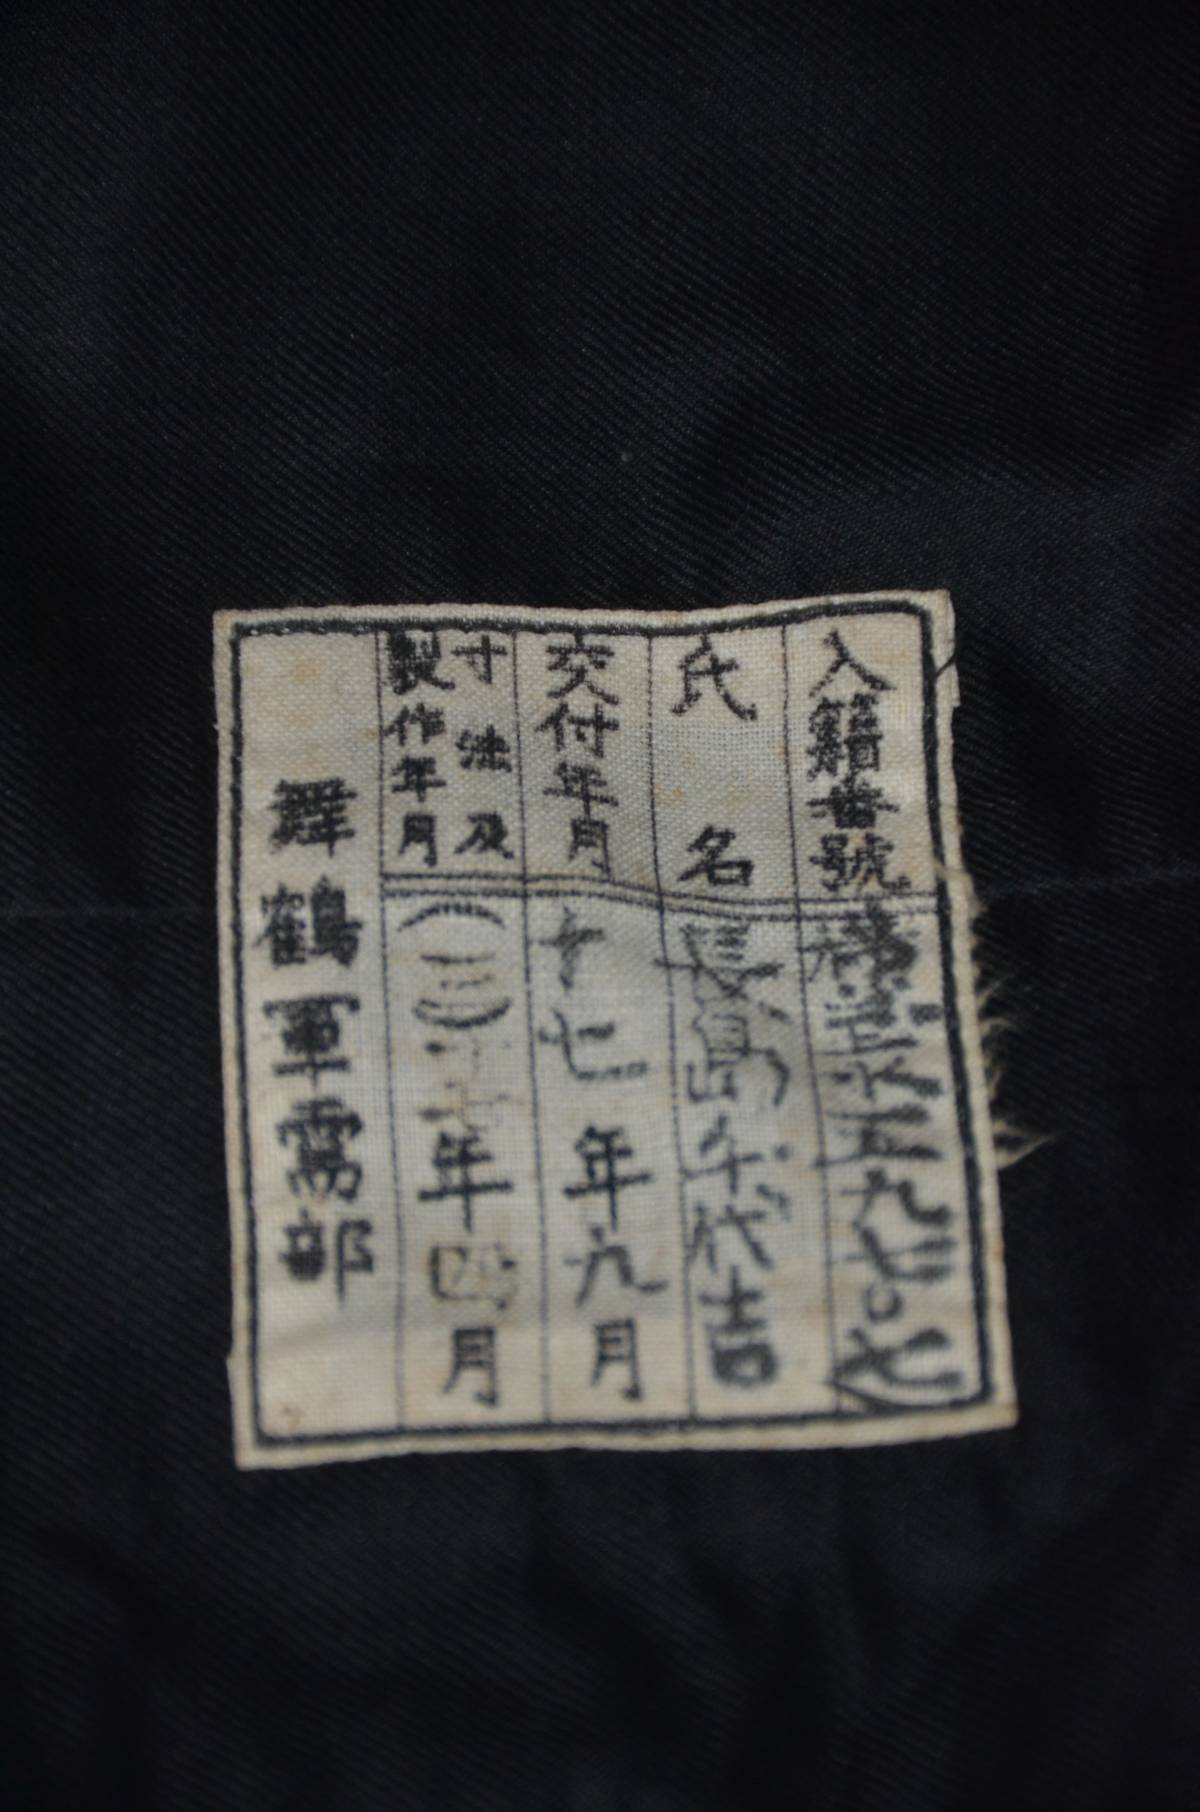 入籍番號 横志水五九七〇七
氏名 長島千代吉
交付年月 十七年九月
寸法及
製作年月 (三) 年四月
舞鶴軍需部